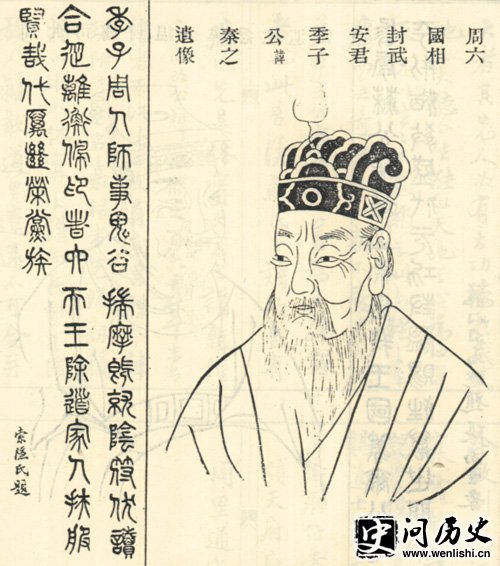 周六
國相
封武
安君
季子
公諱
秦之
遺像
季子周人師事鬼谷揣摩既就陰符伏讀
合從離衡佩印者六天王除道家人扶服
賢哉代厲繼榮黨族
索隱氏題
问历史
www.wenlishi.cn